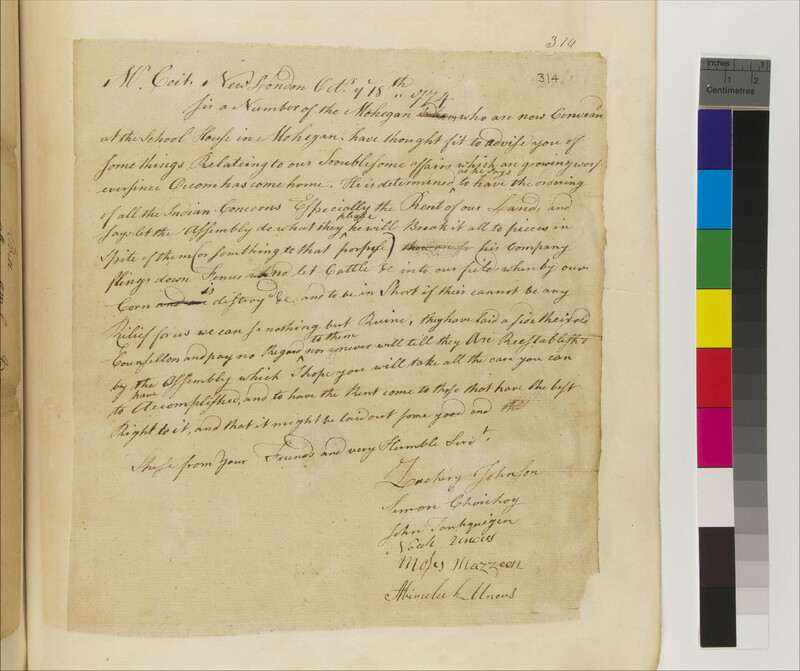 314
314
Mr. Coit. New London Octr. ye 18th 1774
Sir a Number of the Mohegan Indians who are now Conven'd
at the School House in Mohegan. have thought fit to advise you of
some things Relateing to our Troublesome affairs which are growing wors
eversince Occom has come home. He is determined as he says to have the ordering
of all the Indian Concerns Especially the Rent of our Lands, and
says let the Assembly do what they please he will Break it all to pieces in
Spite of them (or somthing to that porpose) his Company
flings down Fences and let Cattle &c into our fields where by our
Corn is distroyd &c. and to be in Short if their cannot be any
Relief for us we can se nothing but Ruine, they have laid a side their old
Counsellors and pay no Regard to them nor never will till they are Reestablisht
by the Assembly which I hope you will take all the care you can
to have Accomplished, and to have the Rent come to those that have the best
Right to it, and that it might be laid out some good end
These from your Friends and very Humble Servt.
Zachery Johnson
Simon Choichoy
John Tantiquigen
Noah Uncus
Moses Mazzeen
Abimeleck Uncus
Inches
1 2
Centimetres